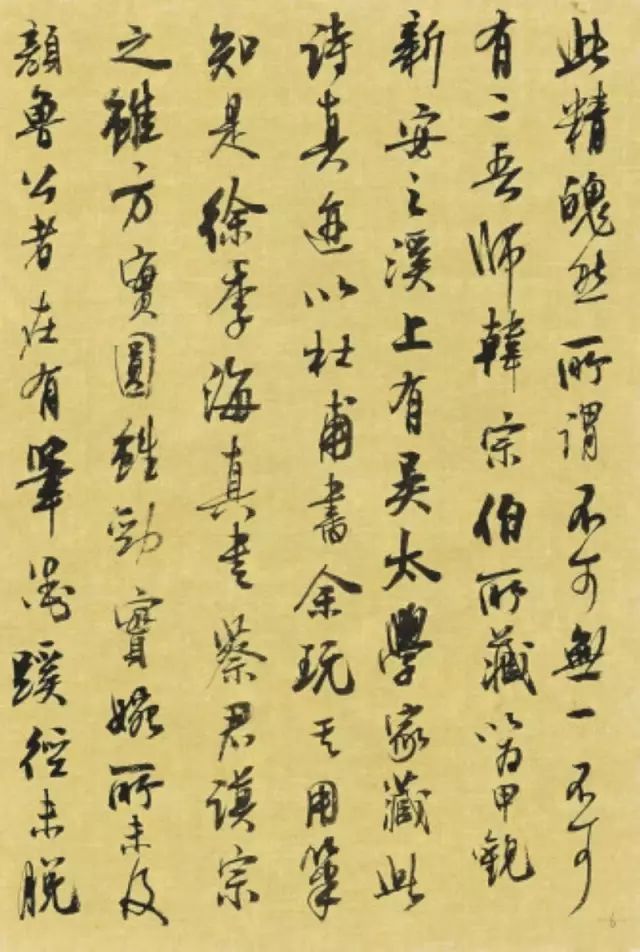 此精魄然所謂不可無一不可
有二吾師韓宗伯所藏以為甲觀
新安之溪上有吳太學家藏此
詩真迹以杜甫書余玩其用筆
知是徐季海真書蔡君謨宗
之雖方實圓雖勁實婉所未及
顏魯公者在有筆蹊徑未脫
6